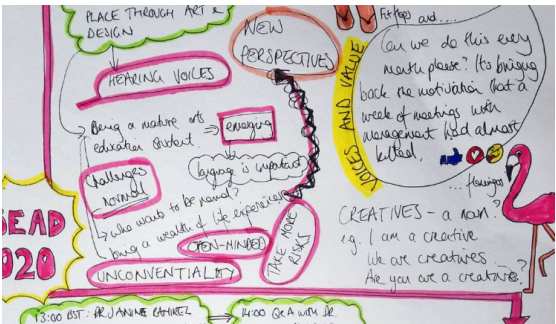 PLACE THROUGH ART &
DESIGN
HEARING VOICES
Being a mature arts
education student.
emerging
language is important
Challenges
normal
who wants to be normal?
bring a wealth of life experience
OPEN-MINDED
UNCONVENTIALITY
TAKE MORE
RISKS
NEW
PERSPECTIVES
VOICES AND VALUE
Flipflops and....
Can we do this every
month please? It's bringing
back the motivation that a
week of meetings with
management had almost
killed.
... flamingos
CREATIVES - a noun?
e.g. I am a creative
We are creatives
Are you are a creative?
SEAD
020
13:00 BST: DR JANINE
14:00 Q&A with DR.